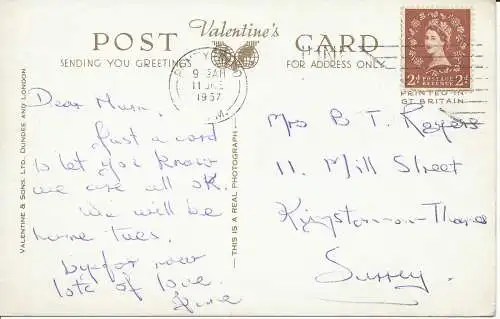 POST Valentine's CARD
SENDING YOU GREETINGS FOR ADDRESS ONLY
9 15AM
1957
2d POSTAGE REVENUE 2d
PRINTED IN
GT BRITAIN
VALENTINE & SONS, LTD. DUNDEE AND LONDON
Dear Mum,
Just a card
to let you know
we are all OK.
We will be
home Tues.
bye for now
lots of love
THIS IS A REAL PHOTOGRAPH
Mrs B T
11. Mill Street
Kingston-on-Thames
Surrey.